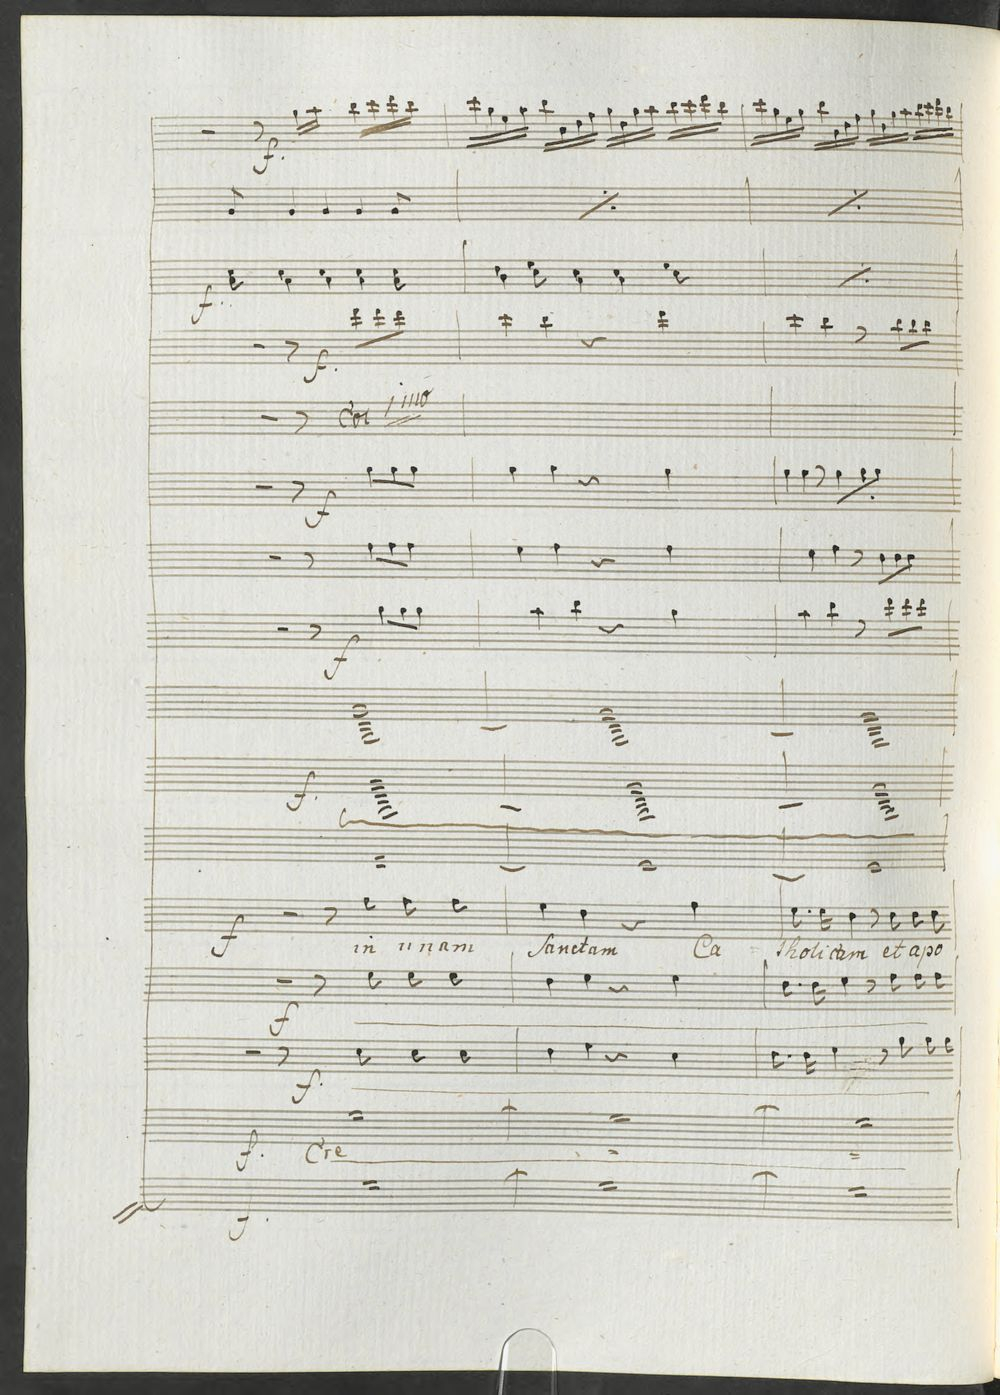 f.
f.
f.
Col 1mo
f
f
f.
f
in unam Sanctam Ca = tholicam et apo
f
f.
f. Cre
f.